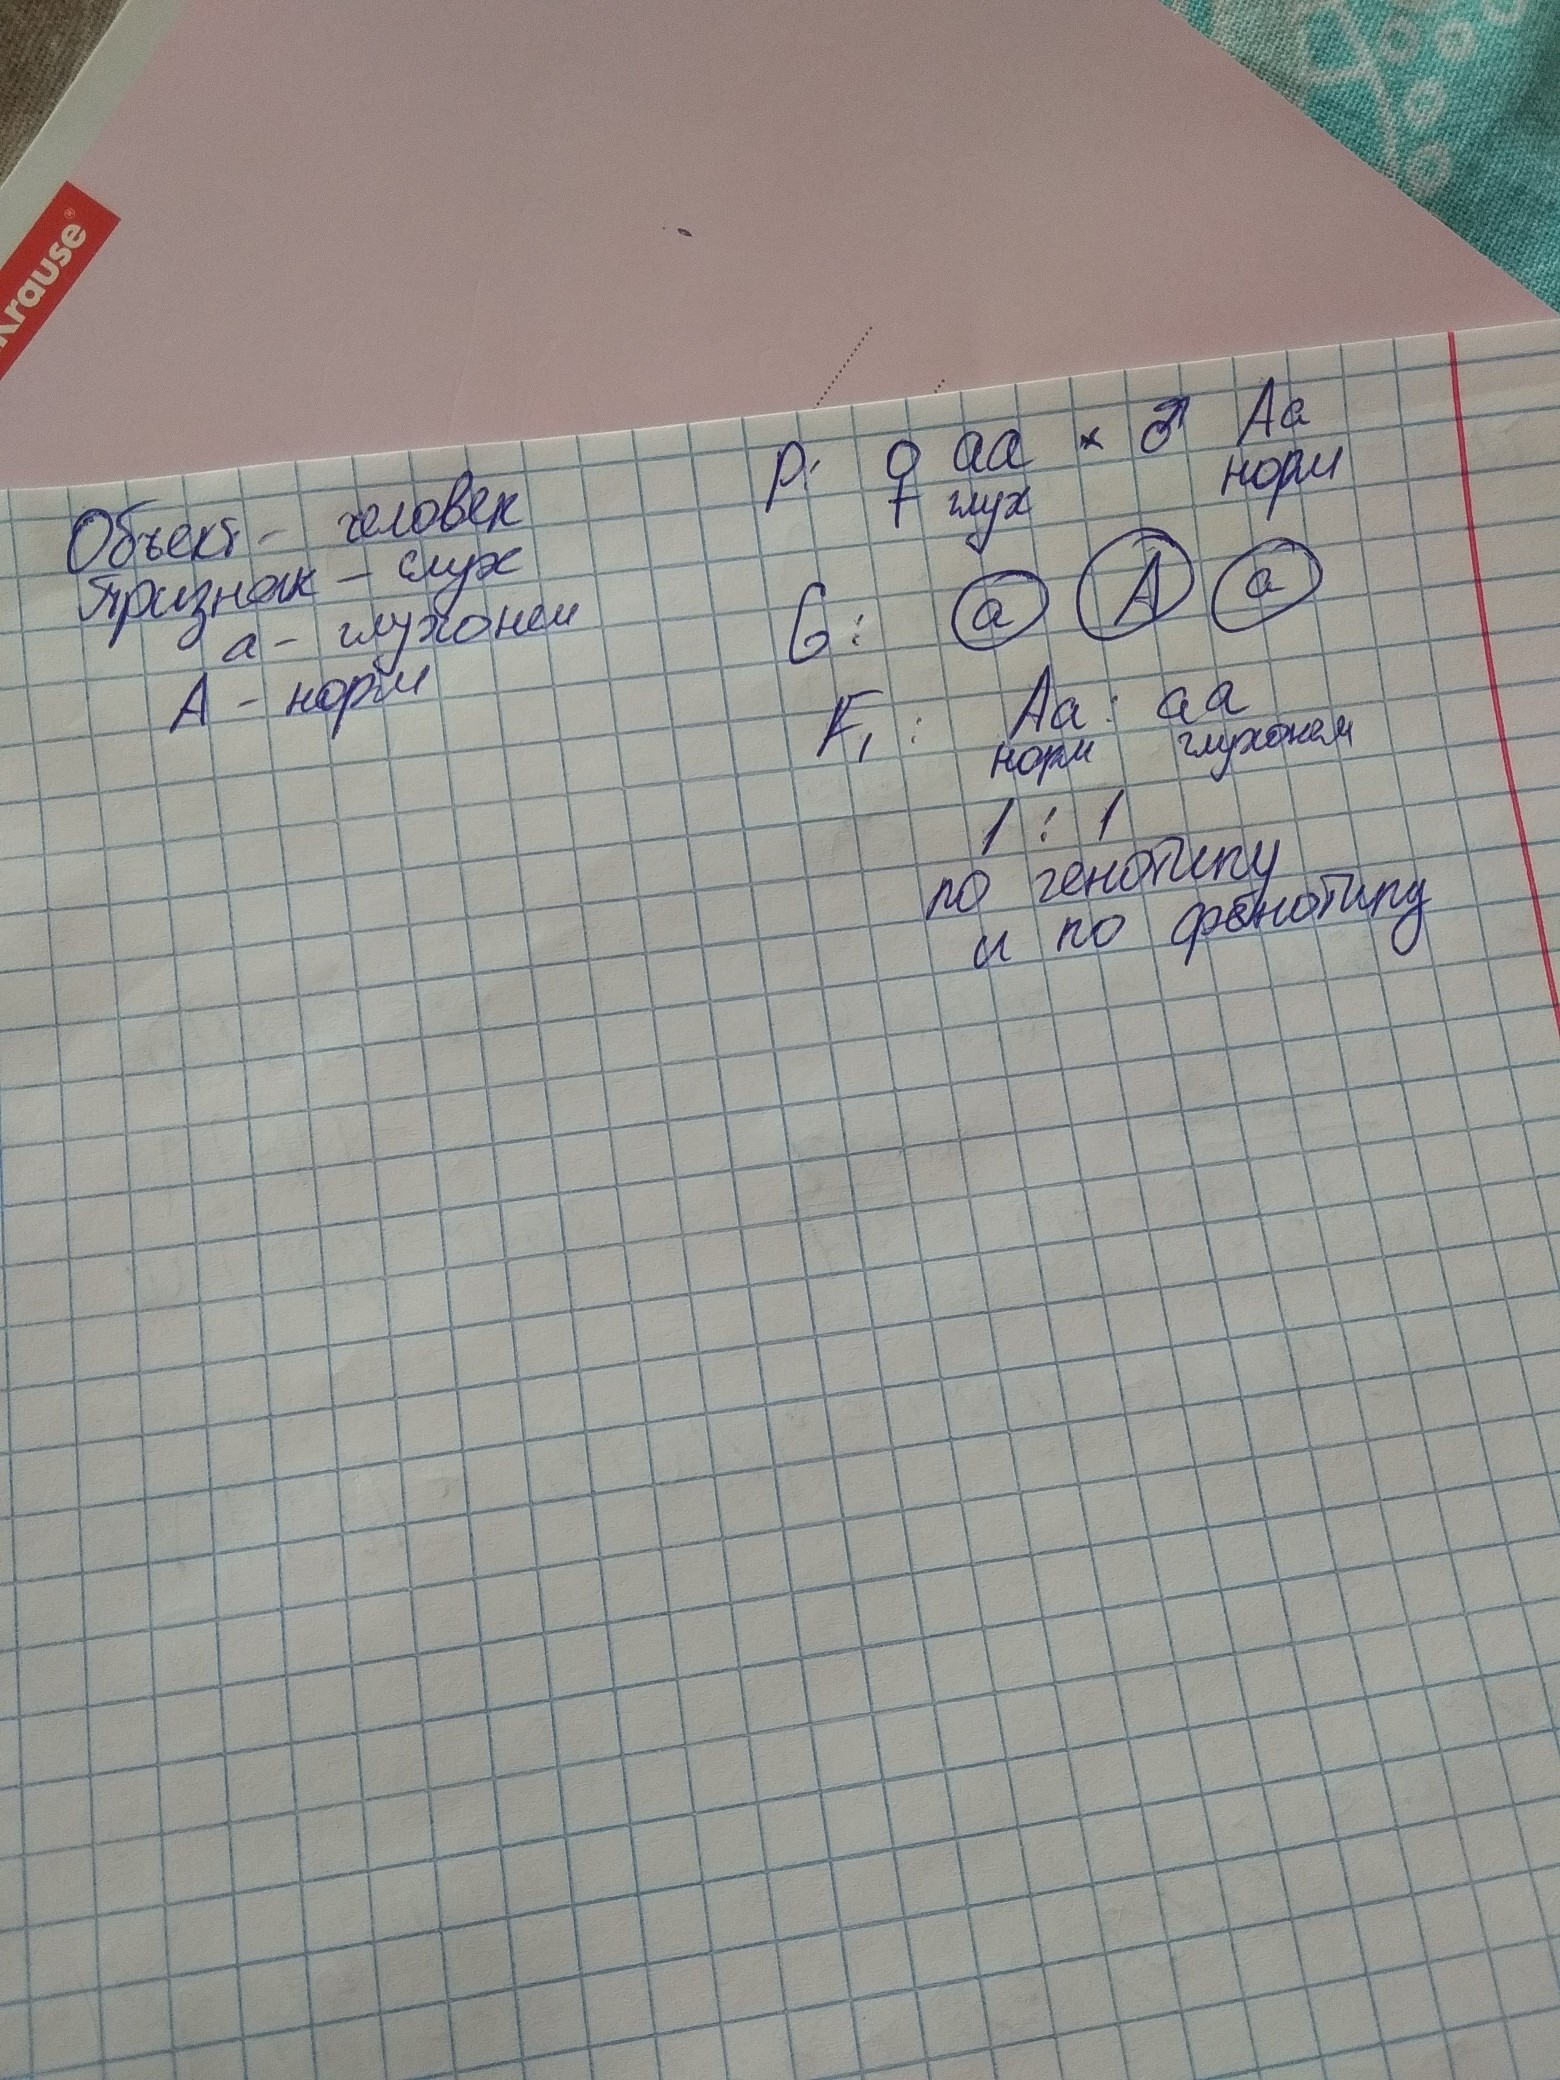 Krause®
Объект - человек
Признак - слух
а - глухонем
А - норм
P: ♀ аа × ♂ Аа
глух норм
G: а А а
F₁: Аа : аа
норм глухонем
1 : 1
по генотипу
и по фенотипу